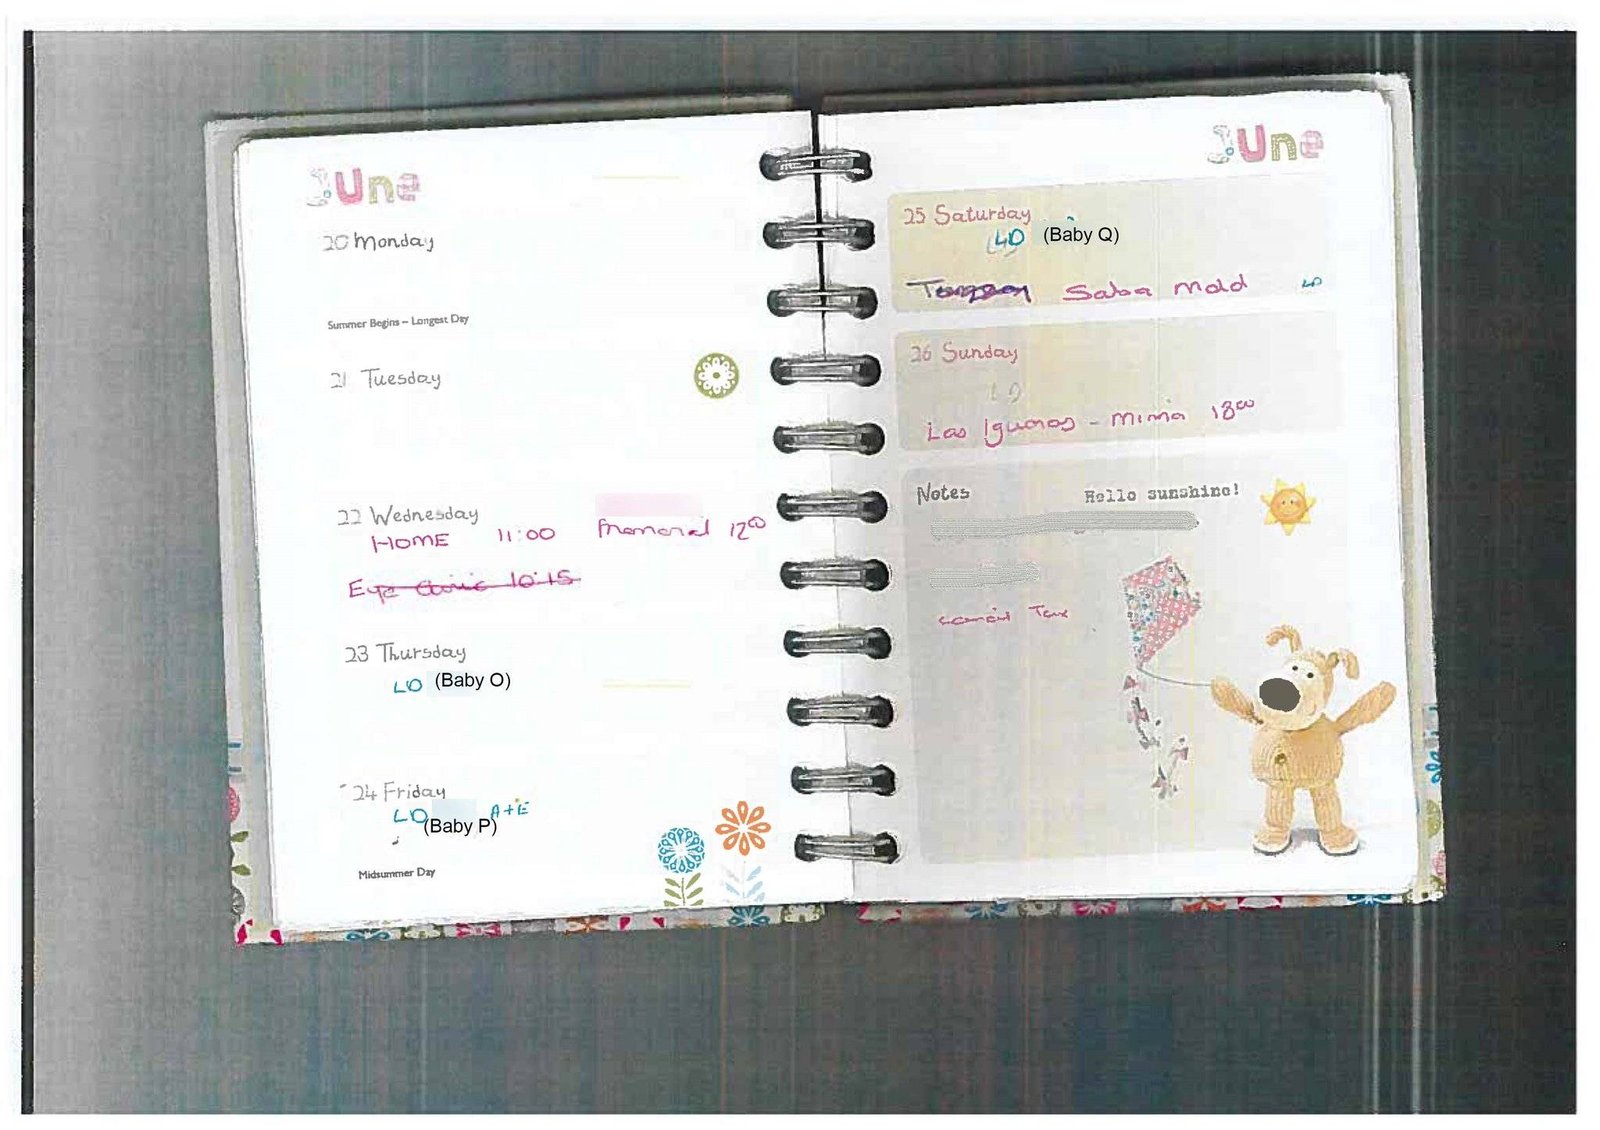 June
20 Monday
Summer Begins – Longest Day
21 Tuesday
22 Wednesday
HOME 11:00 12⁰⁰
Eye Clinic 10:15
23 Thursday
LD (Baby O)
24 Friday
LD A+E
(Baby P)
Midsummer Day
June
25 Saturday
LD (Baby Q)
Salsa Mold LD
26 Sunday
LD
Las Iguanas - Minna 18⁰⁰
Notes Hello sunshine!